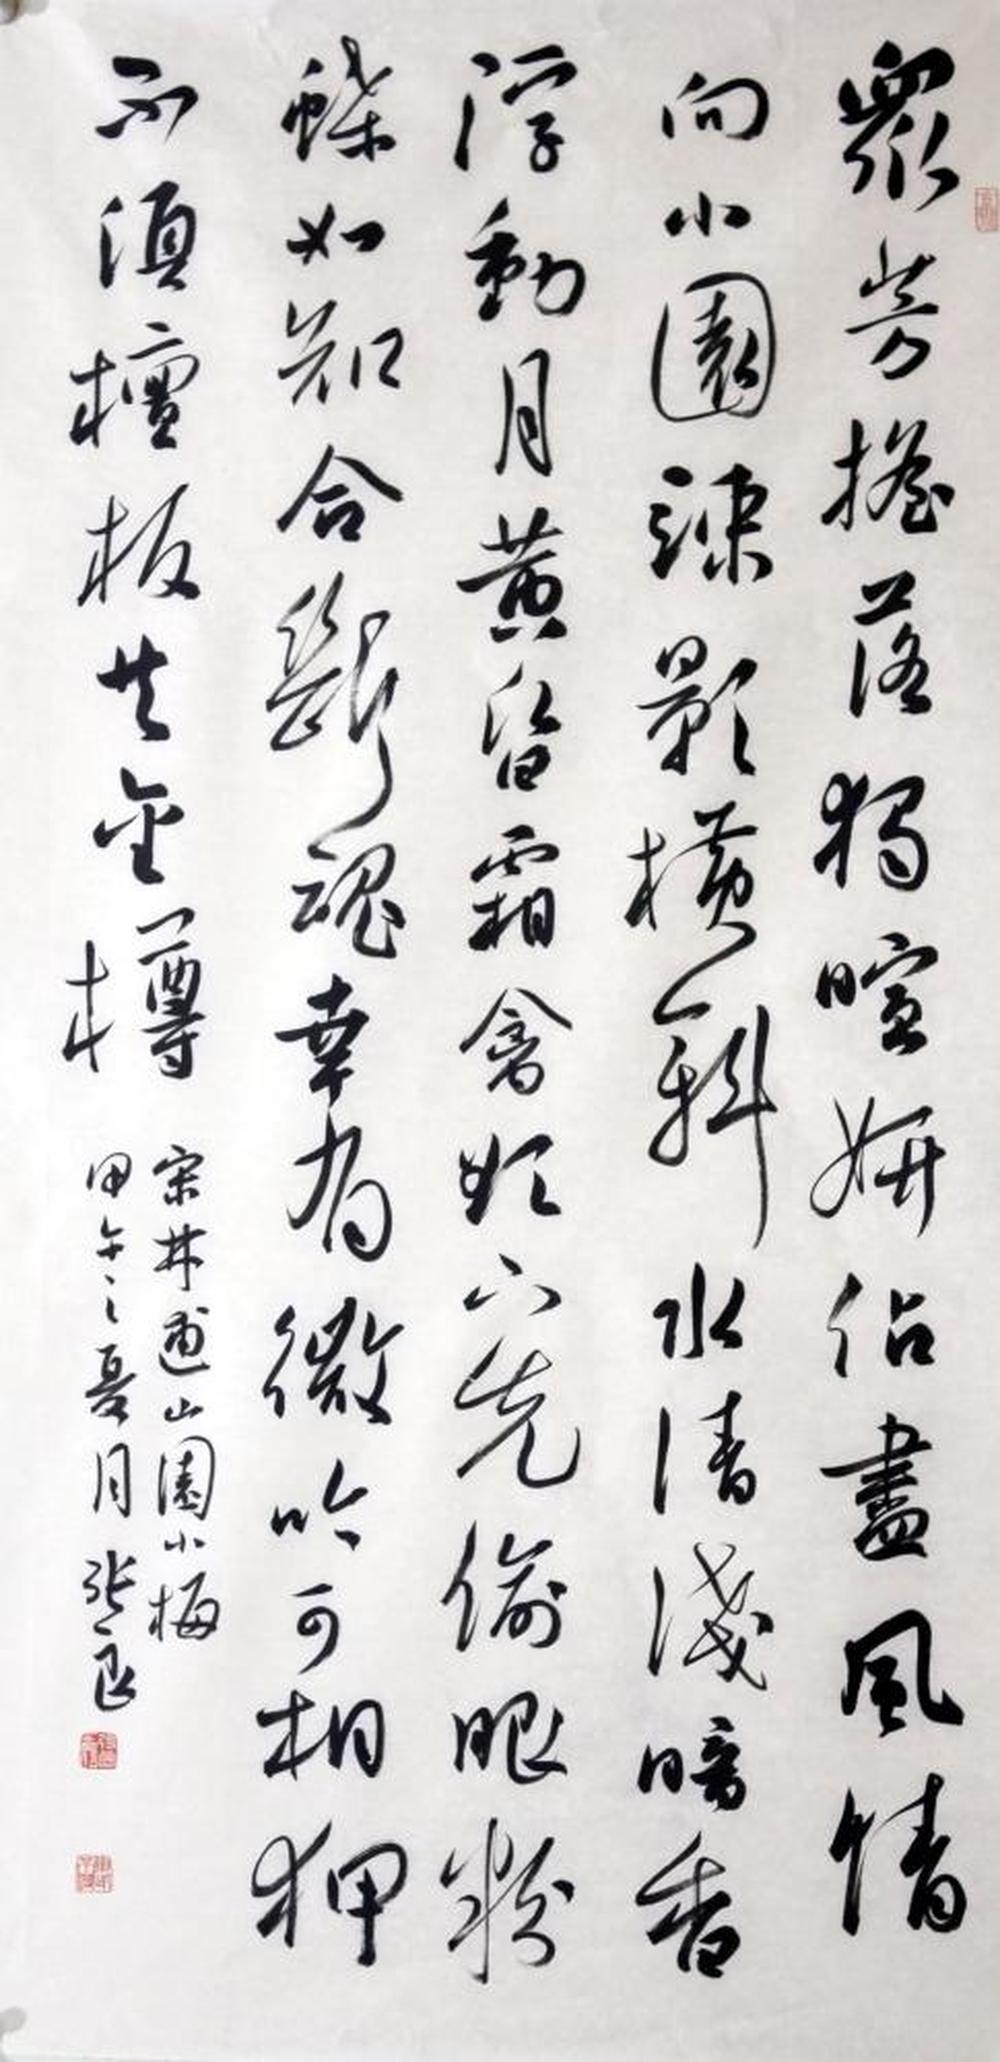 眾芳搖落獨暄妍佔盡風情
向小園疎影橫斜水清淺暗香
浮動月黃昏霜禽欲下先偷眼粉
蝶如知合斷魂幸有微吟可相狎
不須檀板共金樽
宋林逋山園小梅
甲午之夏月張良